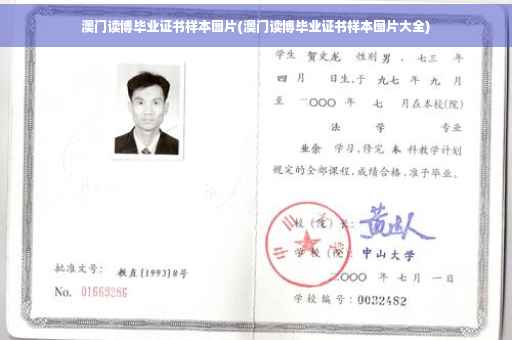 澳门读博毕业证书样本图片(澳门读博毕业证书样本图片大全)
学生 贺文龙 性别 男 、 七三 年
四 月 日生,于 九七 年 九 月
至 二〇〇〇 年 七 月在本校(院)
法 学 专业
业余 学习,修完 本 科教学计划
规定的全部课程,成绩合格,准予毕业。
校 (院) 长:
学 校 (院): 中山大学
二〇〇〇 年 七 月 一 日
学校编号: 0032482
批准文号: 教直[1993]8号
No. 01669286